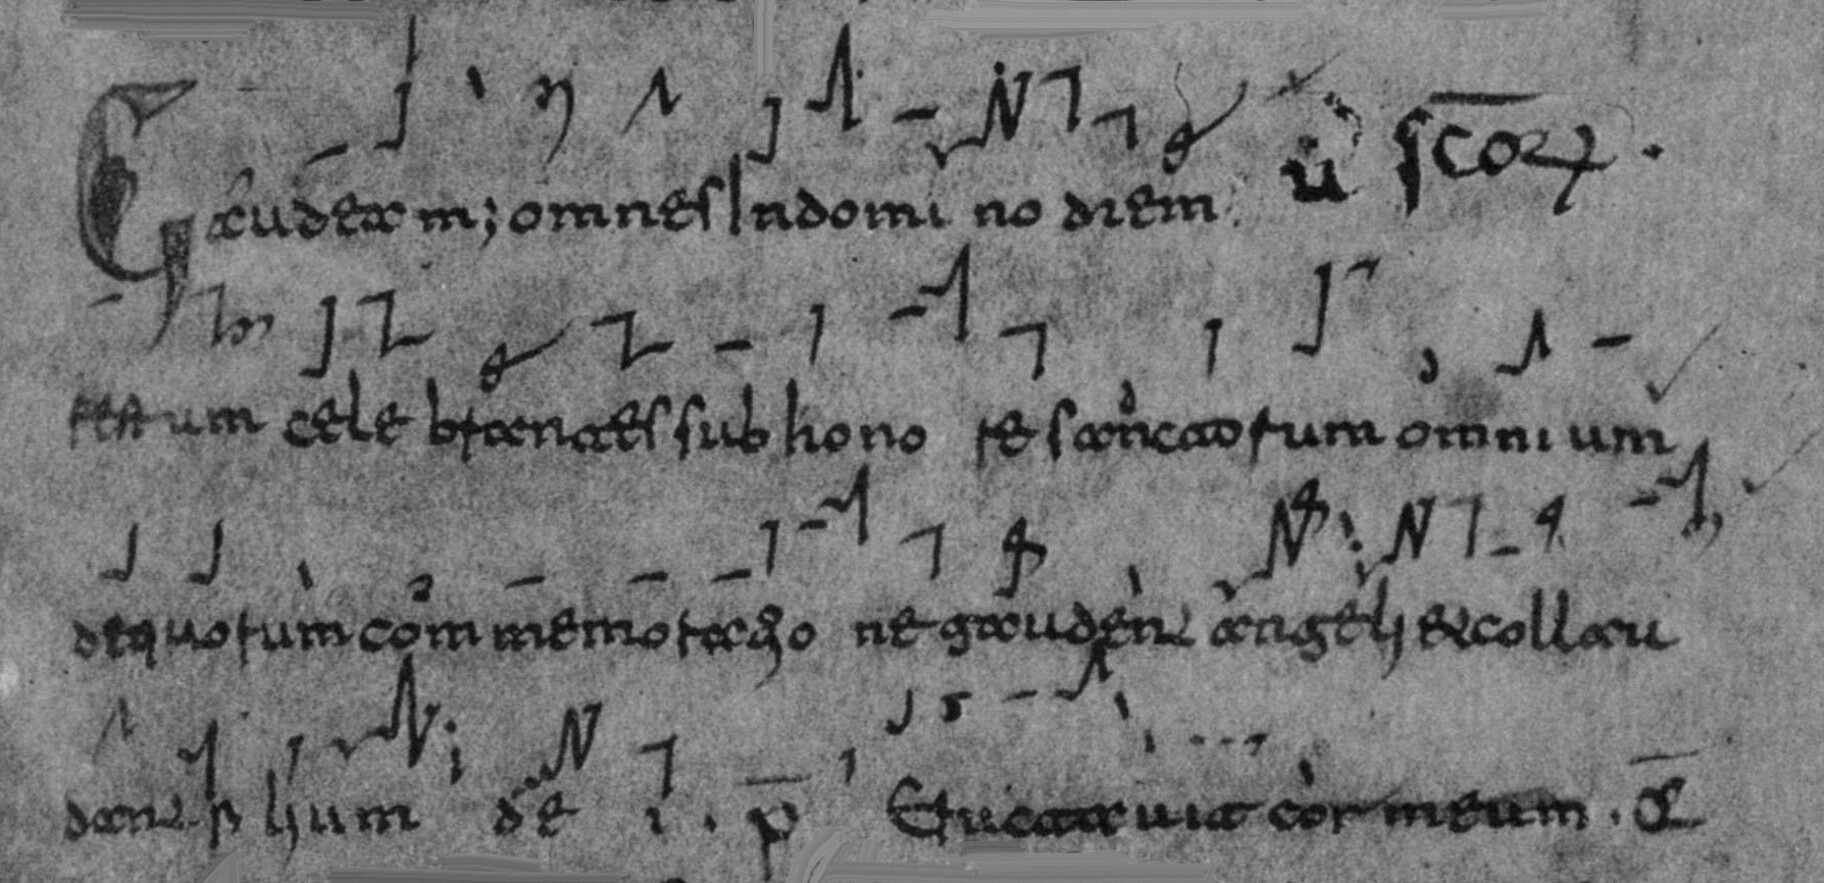 Gaudeam; omnes In domi no diem . ū scōꝝ .
festum cele brantes sub hono re sanctorum omnium
de quorum com memoracio ne gaudent angeli & collau
dant filium de i . p̄ Eructauit cor meum . a